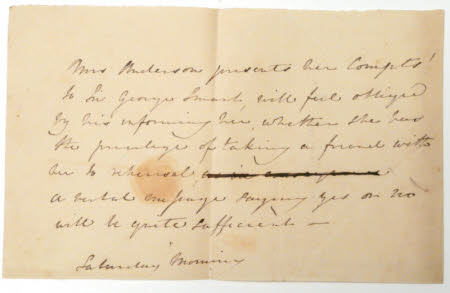 Mrs Anderson presents her Compts
to Sir George Smart, will feel obliged
by his informing her, whether she has
the priviledge of taking a friend with
her to rehersal
a verbal message saying yes or no
will be quite sufficient —
Saturday Morning